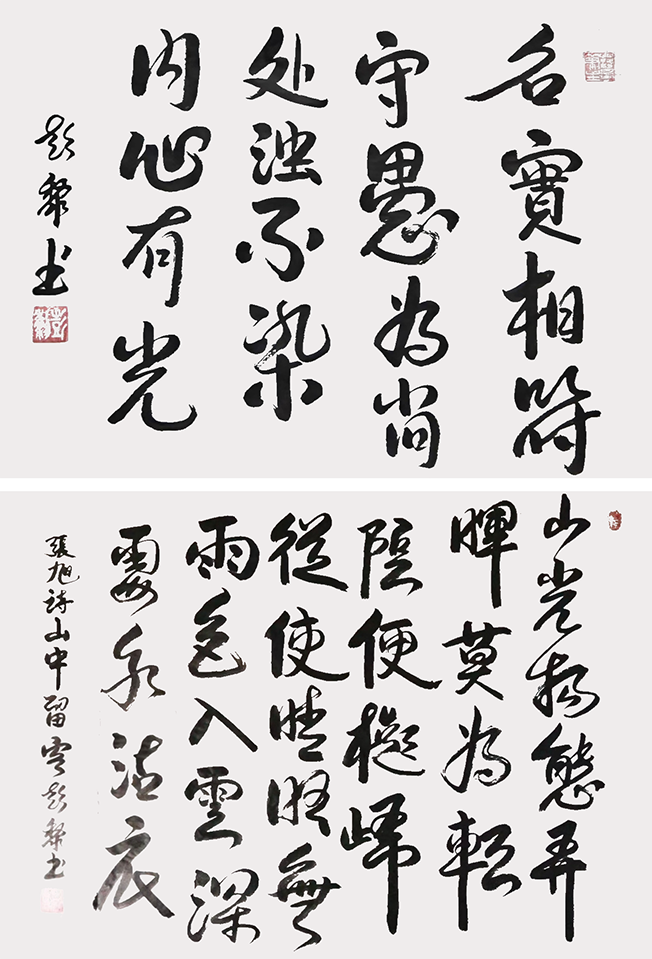 名實相符
守愚為尚
处浊不染
内心有光
彭黎书
山光物態弄
暉莫為輕
陰便擬歸
從使晴明無
雨色入雲深
處亦沾衣
張旭詩山中留客彭黎书